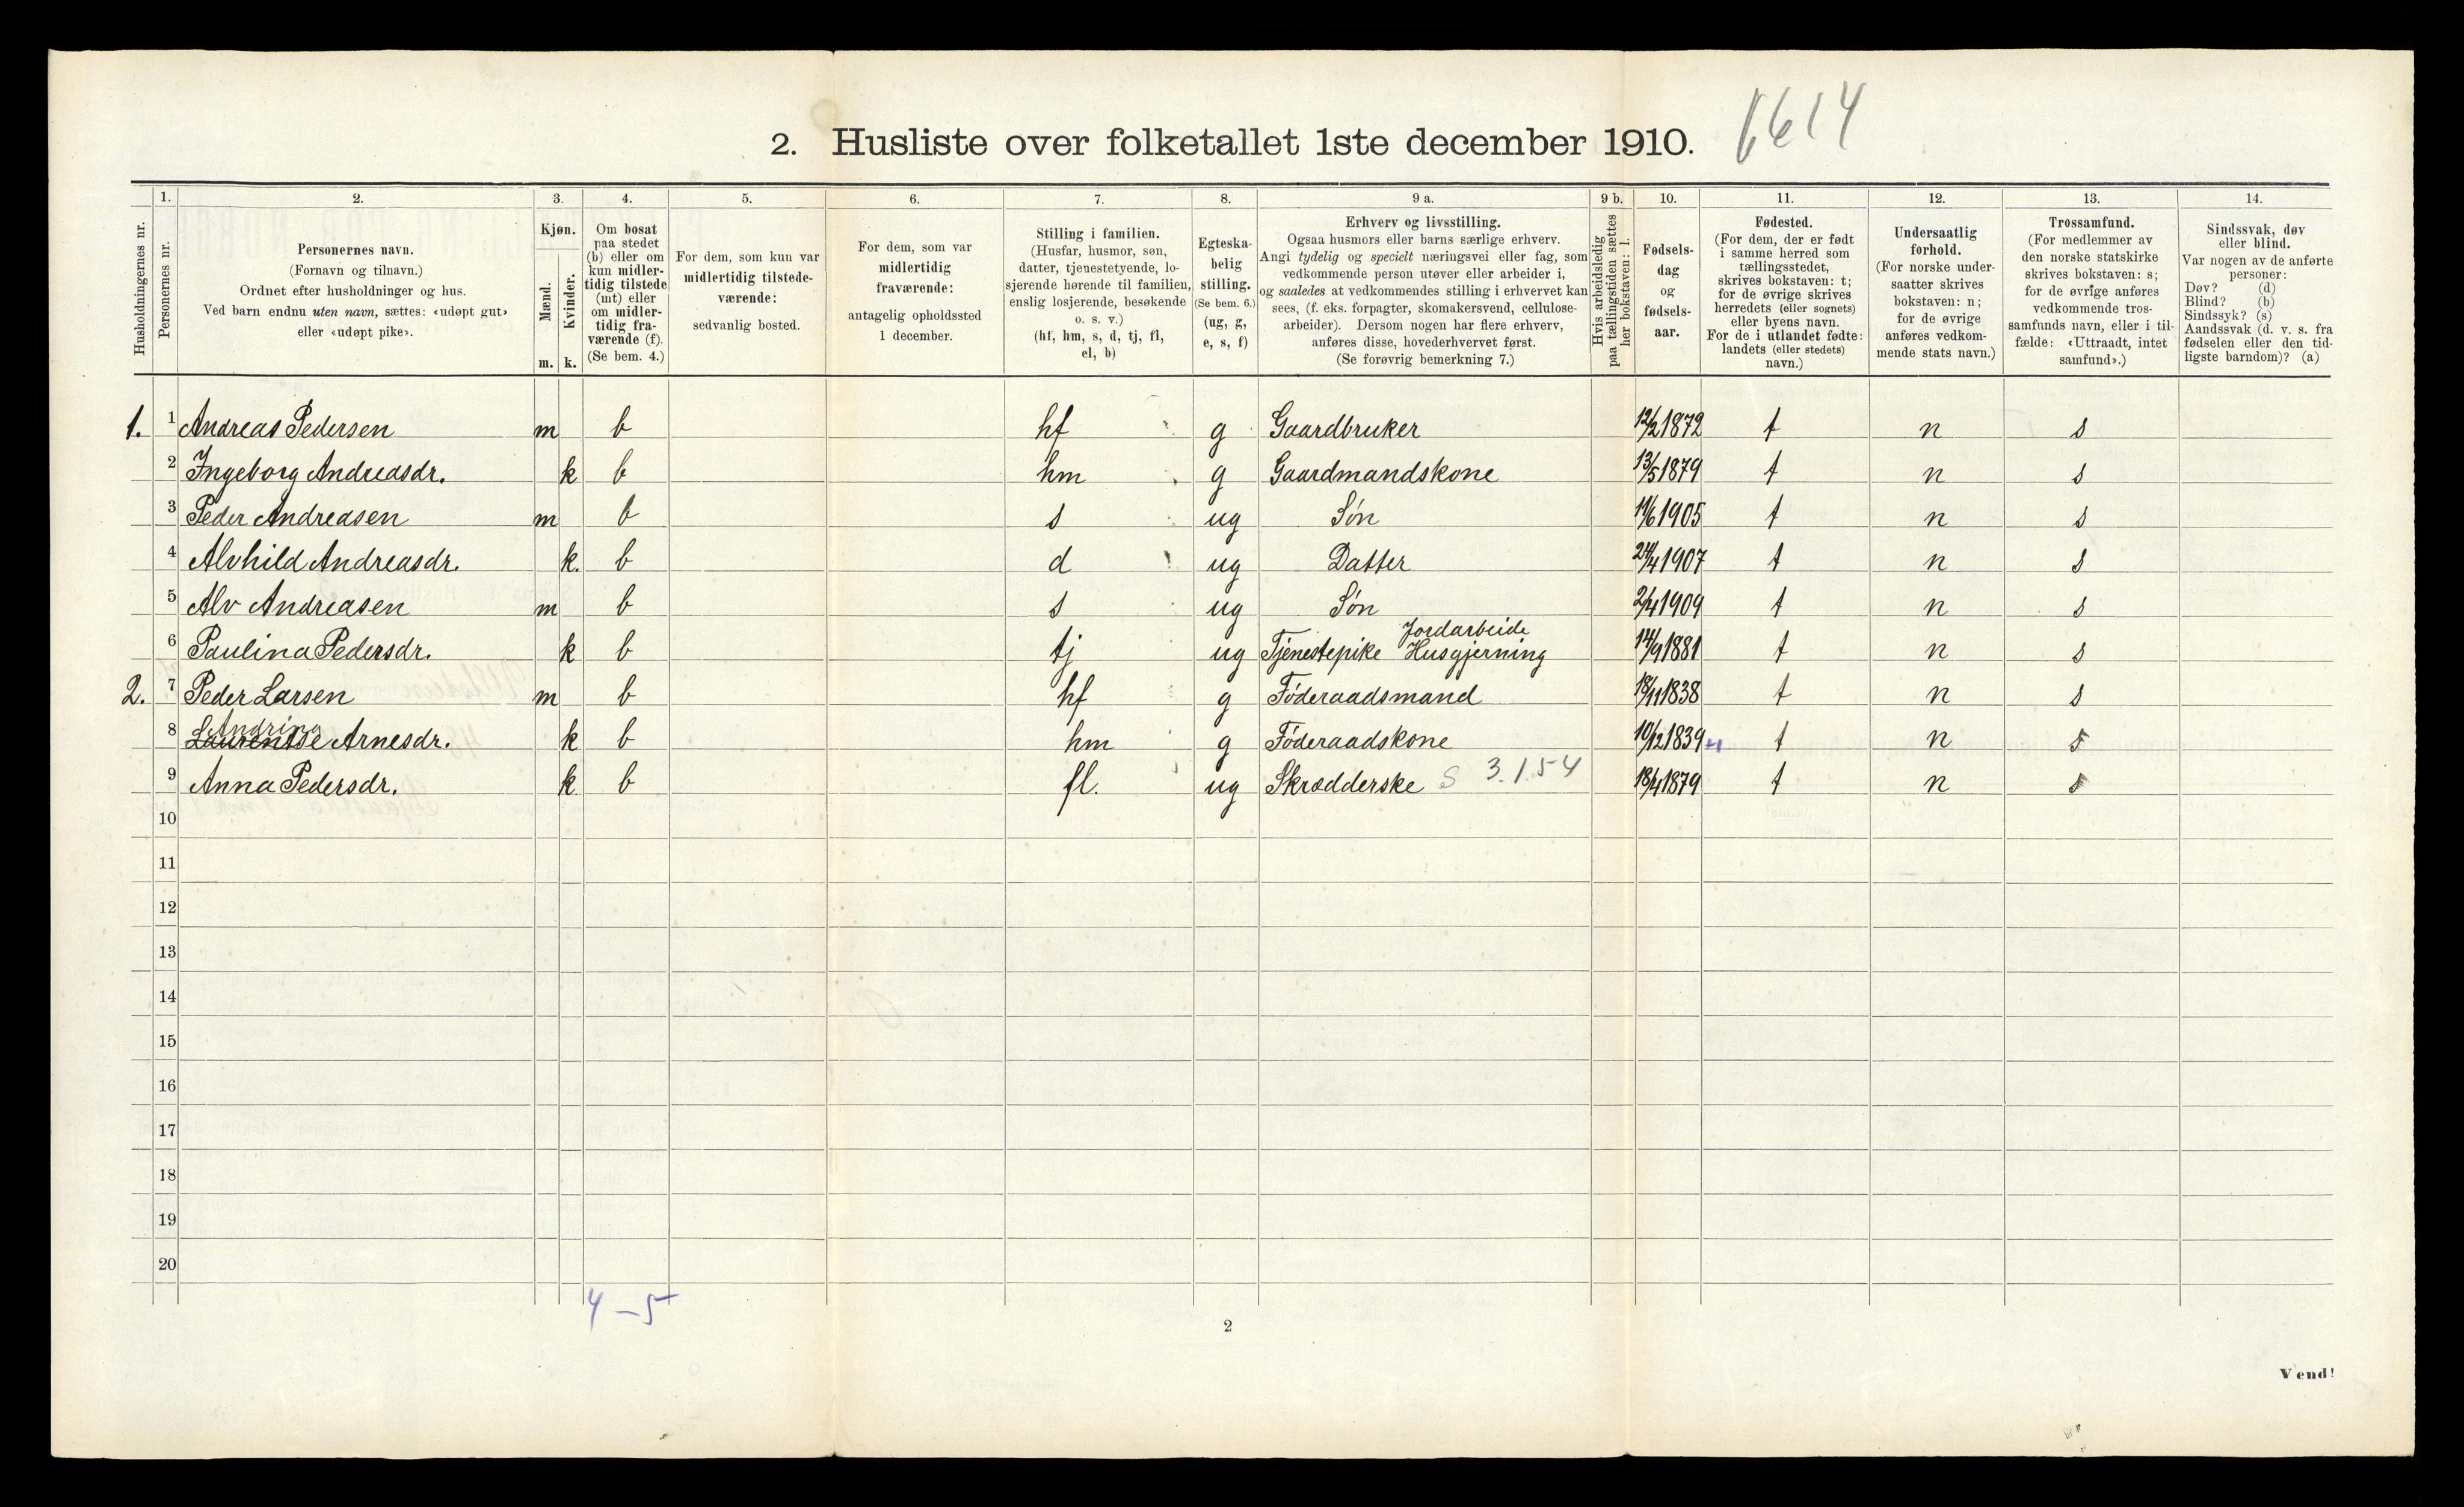 6614
2. Husliste over folketallet 1ste december 1910.
Husholdningernes nr.
1.
Personernes nr.
2.
Personernes navn.
(Fornavn og tilnavn.)
Ordnet efter husholdninger og hus.
Ved barn endnu uten navn, sættes: «udøpt gut»
eller «udøpt pike».
3.
Kjøn.
Mænd.
m.
Kvinder.
k.
4.
Om bosat
paa stedet
(b) eller om
kun midler-
tidig tilstede
(mt) eller
om midler-
tidig fra-
værende (f).
(Se bem. 4.)
5.
For dem, som kun var
midlertidig tilstede-
værende:
sedvanlig bosted.
6.
For dem, som var
midlertidig
fraværende:
antagelig opholdssted
1 december.
7.
Stilling i familien.
(Husfar, husmor, søn,
datter, tjenestetyende, lo-
sjerende hørende til familien,
enslig losjerende, besøkende
o. s. v.)
(hf, hm, s, d, tj, fl,
el, b)
8.
Egteska-
belig
stilling.
(Se bem. 6.)
(ug, g,
e, s, f)
9 a.
Erhverv og livsstilling.
Ogsaa husmors eller barns særlige erhverv.
Angi tydelig og specielt næringsvei eller fag, som
vedkommende person utøver eller arbeider i,
og saaledes at vedkommendes stilling i erhvervet kan
sees, (f. eks. forpagter, skomakersvend, cellulose-
arbeider). Dersom nogen har flere erhverv,
anføres disse, hovederhvervet først.
(Se forøvrig bemerkning 7.)
9 b.
Hvis arbeidsledig
paa tællingstiden sættes
her bokstaven: l.
10.
Fødsels-
dag
og
fødsels-
aar.
11.
Fødested.
(For dem, der er født
i samme herred som
tællingsstedet,
skrives bokstaven: t;
for de øvrige skrives
herredets (eller sognets)
eller byens navn.
For de i utlandet fødte:
landets (eller stedets)
navn.)
12.
Undersaatlig
forhold.
(For norske under-
saatter skrives
bokstaven: n;
for de øvrige
anføres vedkom-
mende stats navn.)
13.
Trossamfund.
(For medlemmer av
den norske statskirke
skrives bokstaven: s;
for de øvrige anføres
vedkommende tros-
samfunds navn, eller i til-
fælde: «Uttraadt, intet
samfund».)
14.
Sindssvak, døv
eller blind.
Var nogen av de anførte
personer:
Døv? (d)
Blind? (b)
Sindssyk? (s)
Aandssvak (d. v. s. fra
fødselen eller den tid-
ligste barndom)? (a)
1. 1 Andreas Pedersen m b hf g Gaardbruker 12/2 1872 t n s
2 Ingeborg Andreasdr. k b hm g Gaardmandskone 13/5 1879 t n s
3 Peder Andreasen m b s ug Søn 11/6 1905 t n s
4 Alvhild Andreasdr. k. b d ug Datter 24/4 1907 t n s
5 Alv Andreasen m b s ug Søn 2/4 1909 t n s
Jordarbeide
6 Paulina Pedersdr. k b tj ug Tjenestepike Husgjerning 14/9 1881 t n s
2. 7 Peder Larsen m b hf g Føderaadsmand 18/11 1838 t n s
Andrina
8 Laurentse Arnesdr. k b hm g Føderaadskone 10/12 1839 t n s
9 Anna Pedersdr. k b fl. ug Skrædderske S 3.1.54 18/4 1879 t n s
10
11
12
13
14
15
16
17
18
19
20
4 – 5
2
Vend!